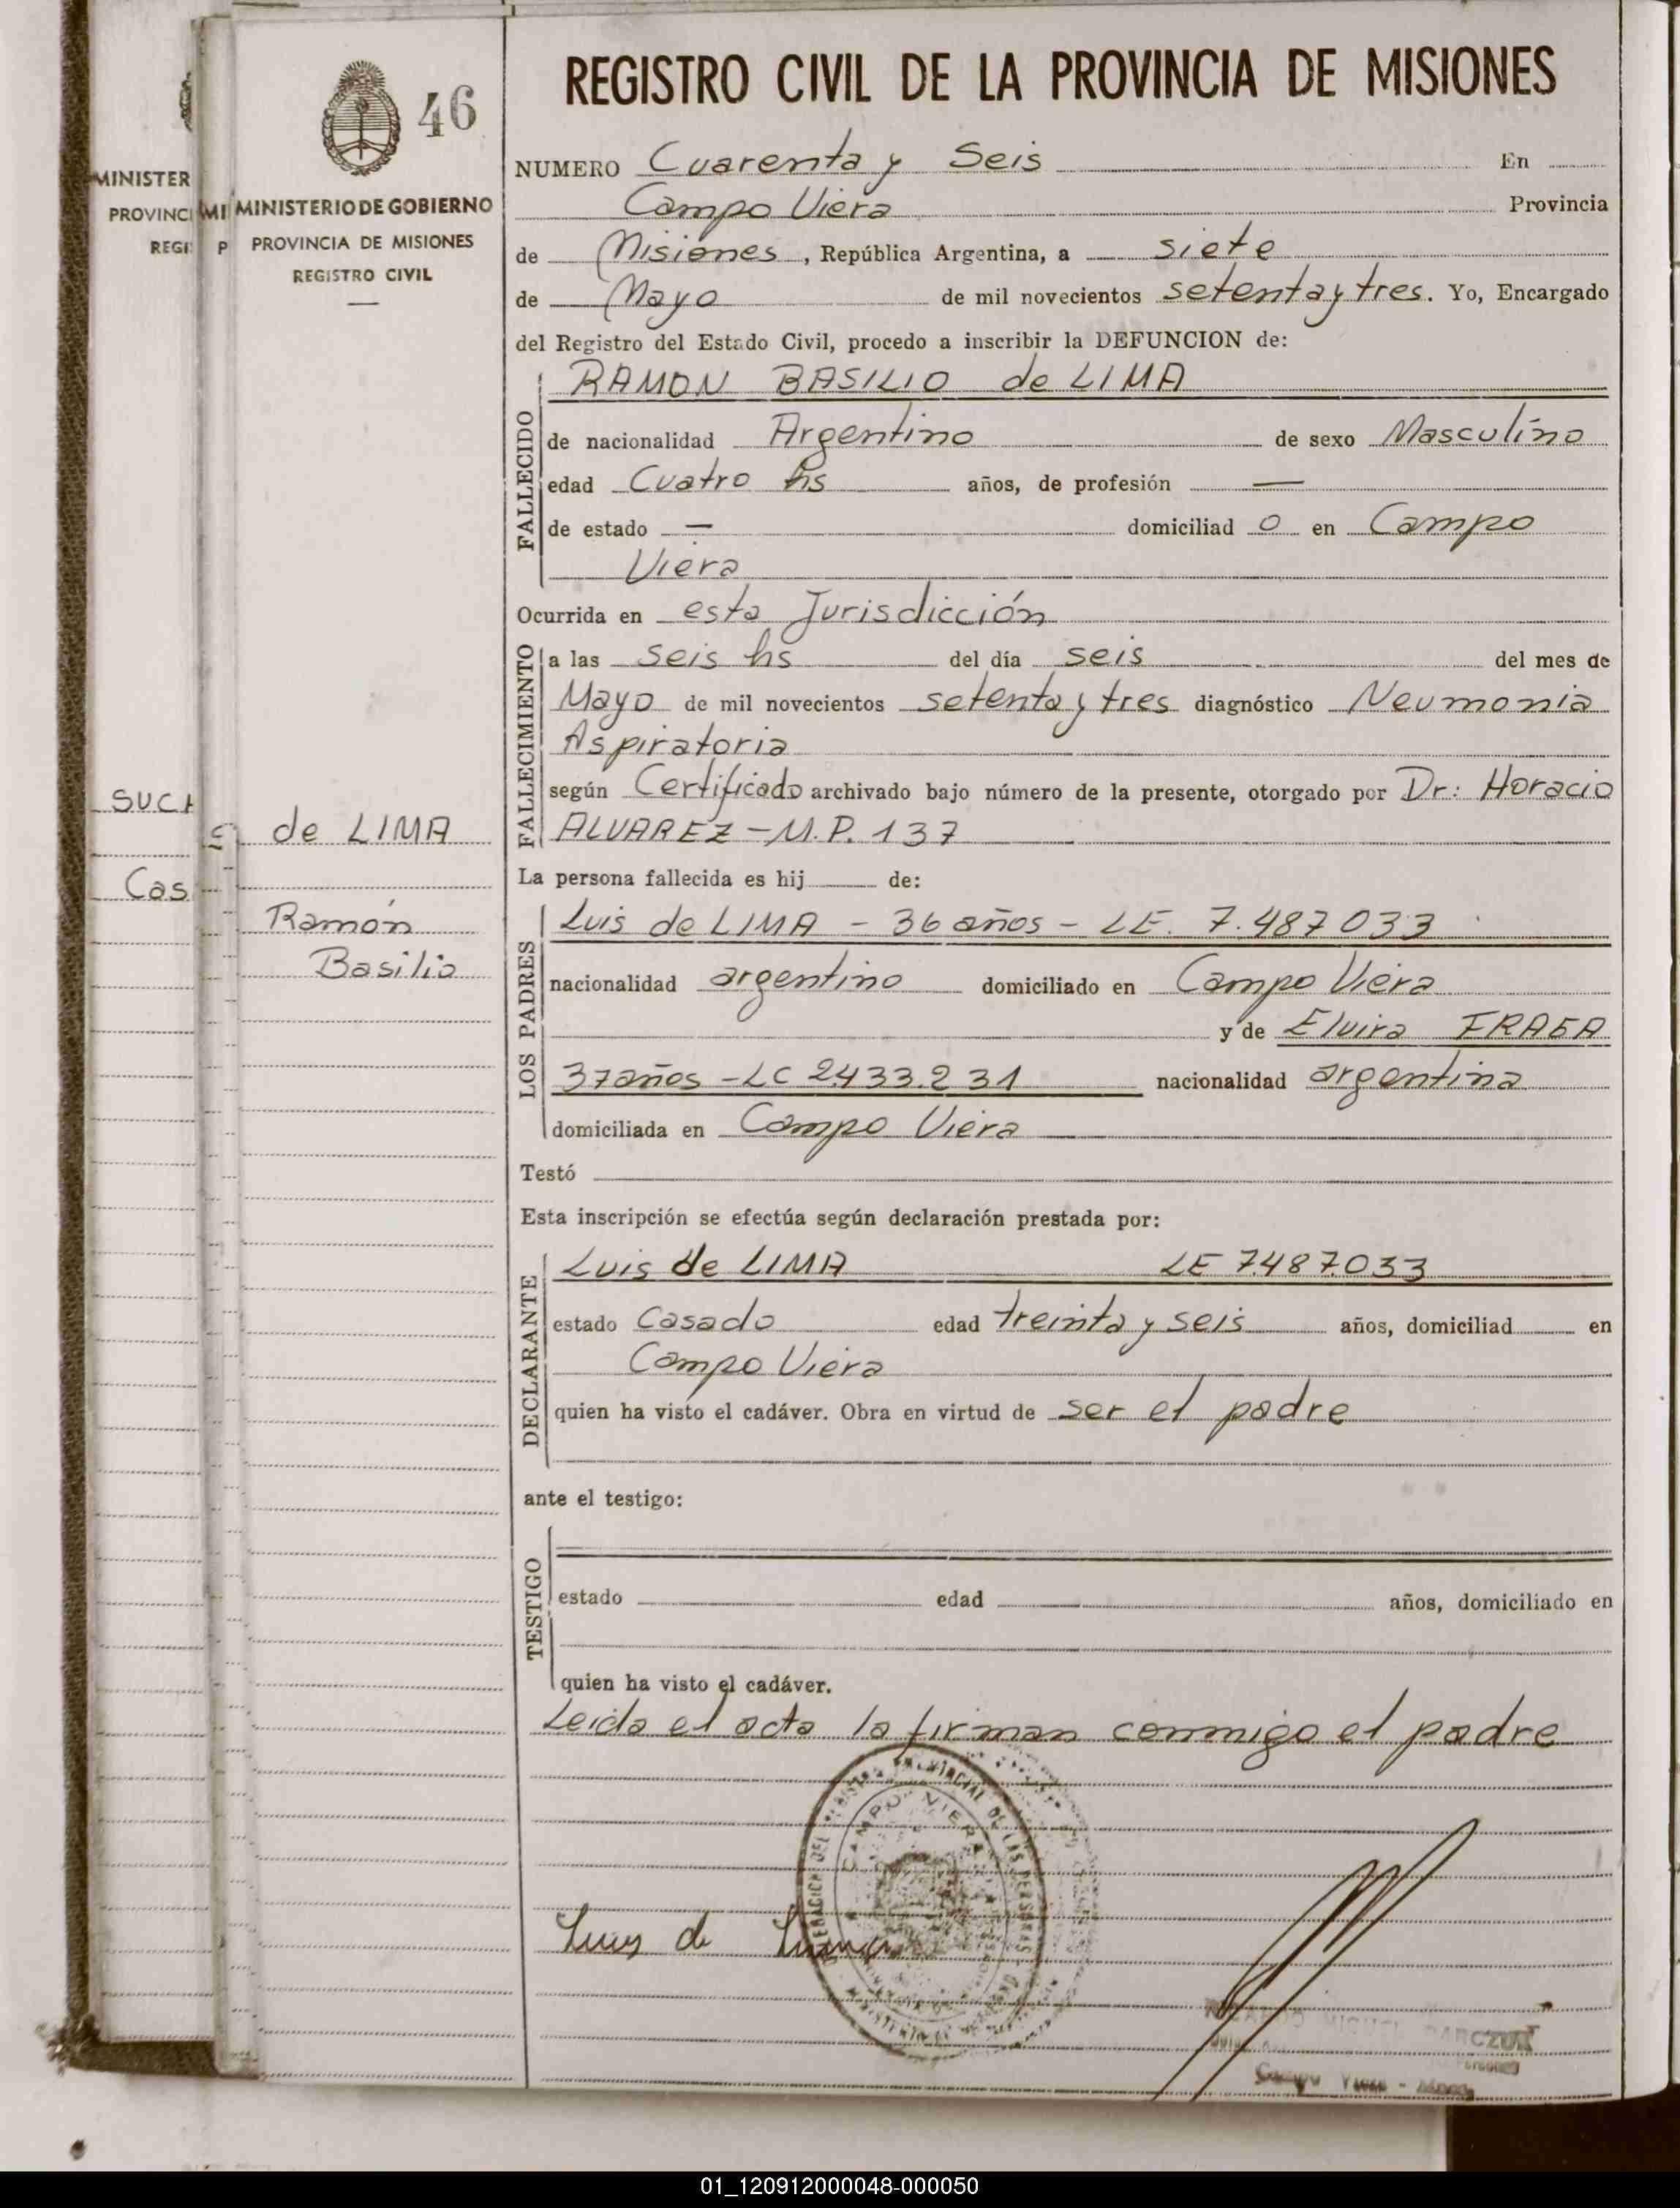 46
MINISTERIO DE GOBIERNO
PROVINCIA DE MISIONES
REGISTRO CIVIL
MINISTER
PROVINCI
REGI
MI
P
SUCA
Cas
de LIMA
Ramón
Basilio
REGISTRO CIVIL DE LA PROVINCIA DE MISIONES
NUMERO Cuarenta y Seis En
Campo Viera Provincia
de Misiones, República Argentina, a siete
de Mayo de mil novecientos setenta y tres. Yo, Encargado
del Registro del Estado Civil, procedo a inscribir la DEFUNCION de:
FALLECIDO
RAMON BASILIO de LIMA
de nacionalidad Argentino de sexo Masculino
edad Cuatro hs años, de profesión —
de estado — domiciliad o en Campo
Viera
Ocurrida en esta Jurisdicción
FALLECIMIENTO
a las seis hs del día seis del mes de
Mayo de mil novecientos setenta y tres diagnóstico Neumonia
Aspiratoria
según Certificado archivado bajo número de la presente, otorgado por Dr: Horacio
ALVAREZ - M.P. 137
La persona fallecida es hij de:
LOS PADRES
Luis de LIMA - 36 años - LE. 7.487033
nacionalidad argentino domiciliado en Campo Viera
y de Elvira FRAGA
37 años - LC 2433.231 nacionalidad argentina
domiciliada en Campo Viera
Testó
Esta inscripción se efectúa según declaración prestada por:
DECLARANTE
Luis de LIMA LE 7487.033
estado Casado edad treinta y seis años, domiciliad en
Campo Viera
quien ha visto el cadáver. Obra en virtud de ser el padre
ante el testigo:
TESTIGO
estado edad años, domiciliado en
quien ha visto el cadáver.
Leida el acta la firman conmigo el padre
CAMPO VIERA
Luis de Lima
MIGUEL
Campo Viera
01_120912000048-000050